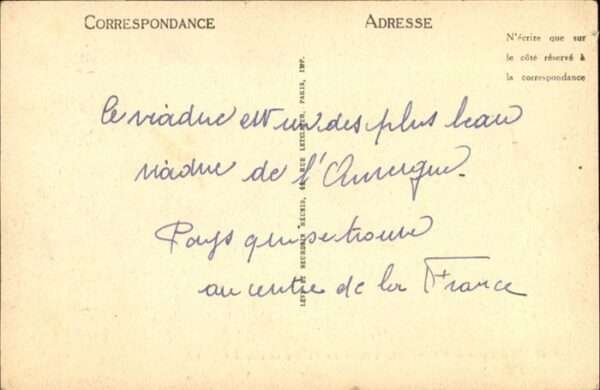 CORRESPONDANCE
ADRESSE
N'écrire que sur
le côté réservé à
la correspondance
Ce viaduc est un des plus beau
viaduc de l'Auvergne.
Pays qui se trouve
au centre de la France
LEVY ET NEURDEIN RÉUNIS, 44, RUE LETELLIER, PARIS, IMP.